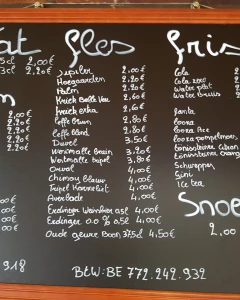 at
2,00€
3cl 2,20€
2,20€
2,00€
2,20€
2,20€
2,20€
918
fles
Jupiler 2,00€
Hoegaarden 2,20€
Palm 2,20€
Kriek Belle Vue 2,20€
2,20€
Leffe bruin 2,80€
Leffe blond 2,80€
Duvel 3,50€
Westmalle tripel 3,80€
Orval 4,00€
Chimay blauw 4,00€
Tripel Karmeliet 4,00€
4,00€
Erdinger 4,00€
Erdinger 0.0% 4,00€
Oude geuze Boon 37,5cl 4,50€
BTW:BE 772.242.932
fris
Cola
Cola zero
Water plat
Water bruis
Fanta
Looza
Looza Ace
Looza pompelmoes
Schweppes
Gini
Ice tea
Snoe
2,00